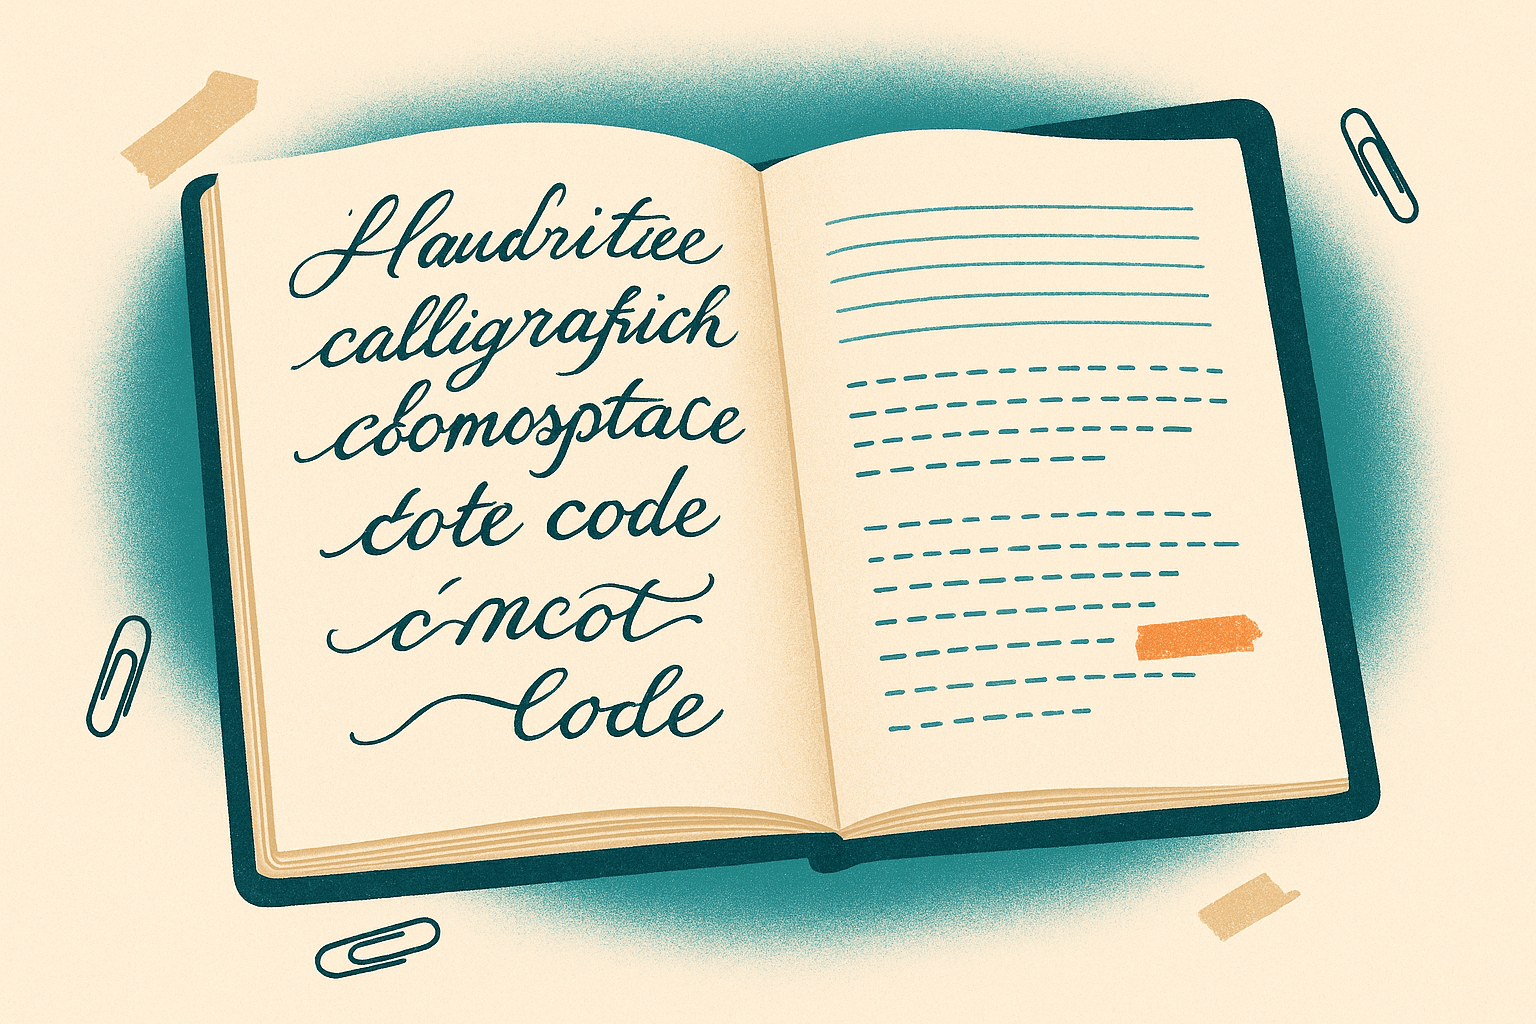 Haudritiee
calligrafich
cbomosptace
tote code
c'mcot
lode